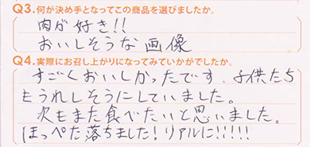 Q3.何が決め手となってこの商品を選びましたか。
肉が好き!!
おいしそうな画像
Q4.実際にお召し上がりになってみていかがでしたか。
すごくおいしかったです。子供たち
もうれしそうにしていました。
次もまた食べたいと思いました。
ほっぺた落ちました!リアルに!!!!!